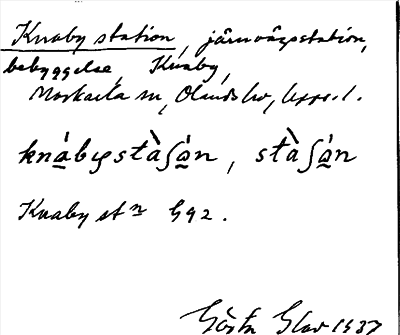 Knaby station, järnvägsstation,
bebyggelse, Knaby,
Morkarla sn, Olands hd, Upps. l.
knábystàʃán, stàʃán
Knaby stn G92.
Gösta 1937